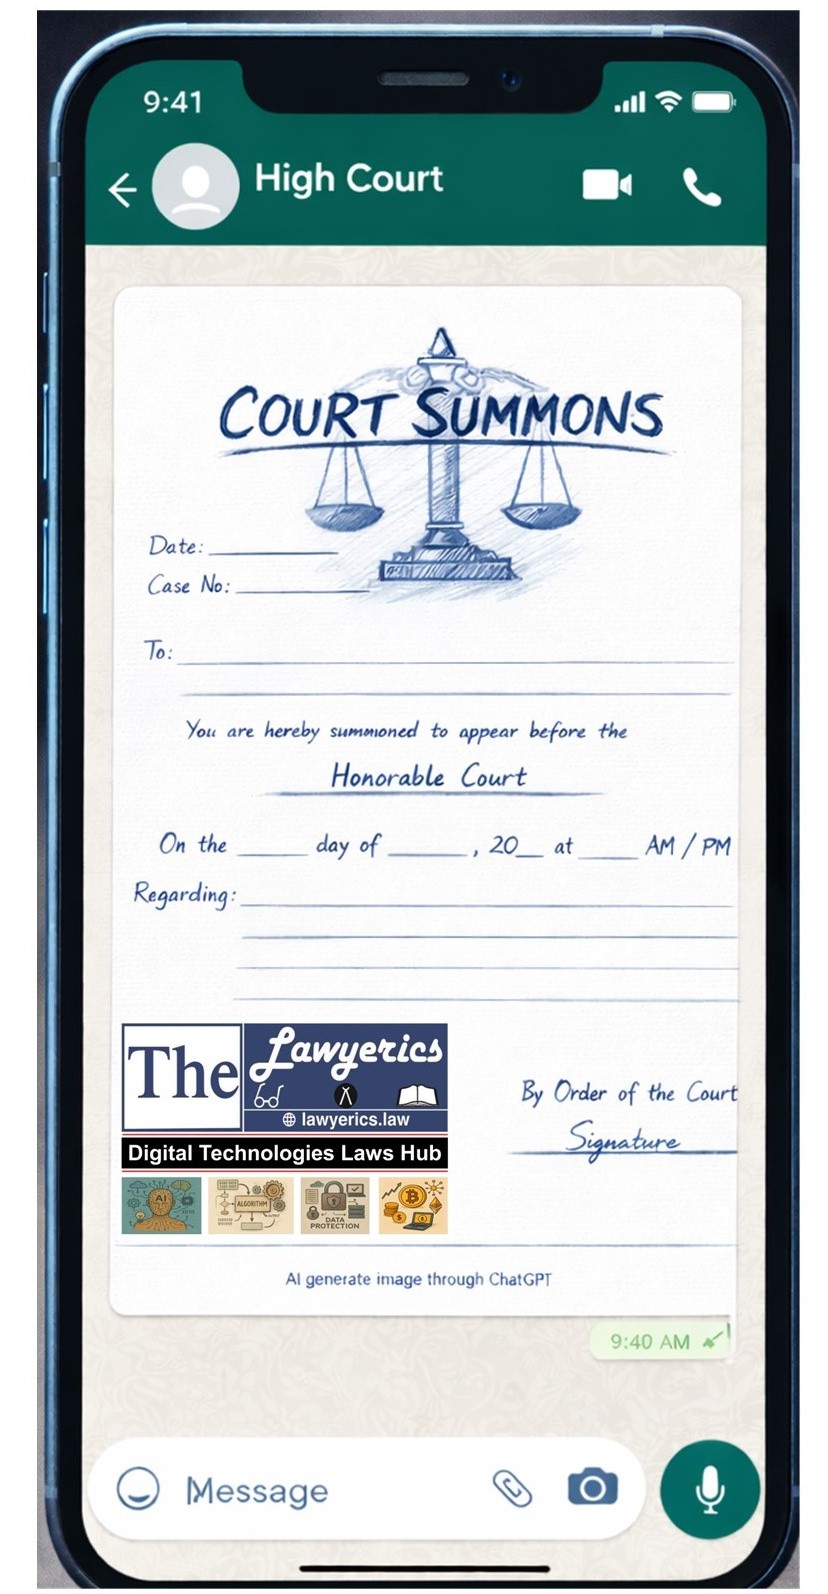 9:41
High Court
COURT SUMMONS
Date:
Case No:
To:
You are hereby summoned to appear before the
Honorable Court
On the ______ day of ______, 20__ at _____ AM / PM
Regarding:
The Lawyerics
lawyerics.law
Digital Technologies Laws Hub
AI
ALGORITHM
DATA PROTECTION
By Order of the Court
Signature
AI generate image through ChatGPT
9:40 AM
Message